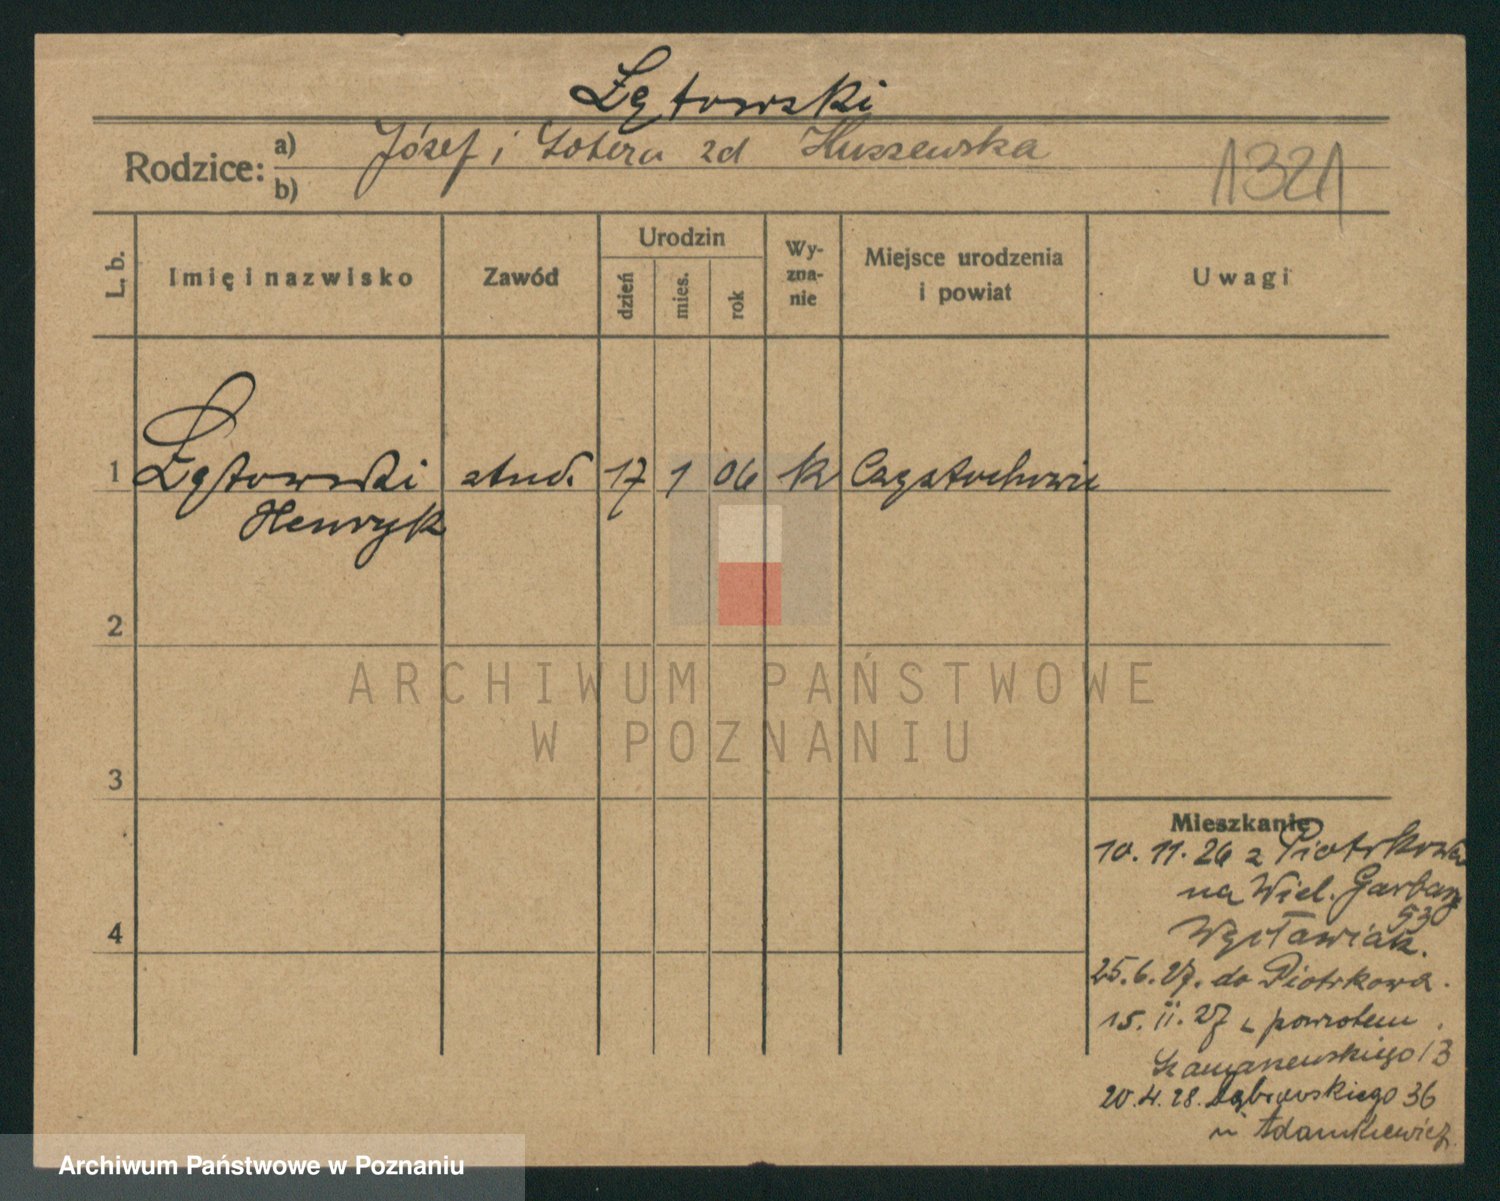 Łętowski
Rodzice: a) Józef i
b)
1321
L. b.
Imię i nazwisko
Zawód
Urodzin
dzień
mies.
rok
Wy-
zna-
nie
Miejsce urodzenia
i powiat
Uwagi
1 Łętowski stud. 17 1 06 k
Henryk
2
ARCHIWUM PAŃSTWOWE
W POZNANIU
3
Mieszkanie
10. 11. 26 z Piotrkowa
na Wiel. Garbary
53
4
25. 6. 27. do Piotrkowa.
15. II. 27 z powrotem
Szamarzewskiego 13
20. 4. 28. Dąbrowskiego 36
Adamkiewicz
Archiwum Państwowe w Poznaniu